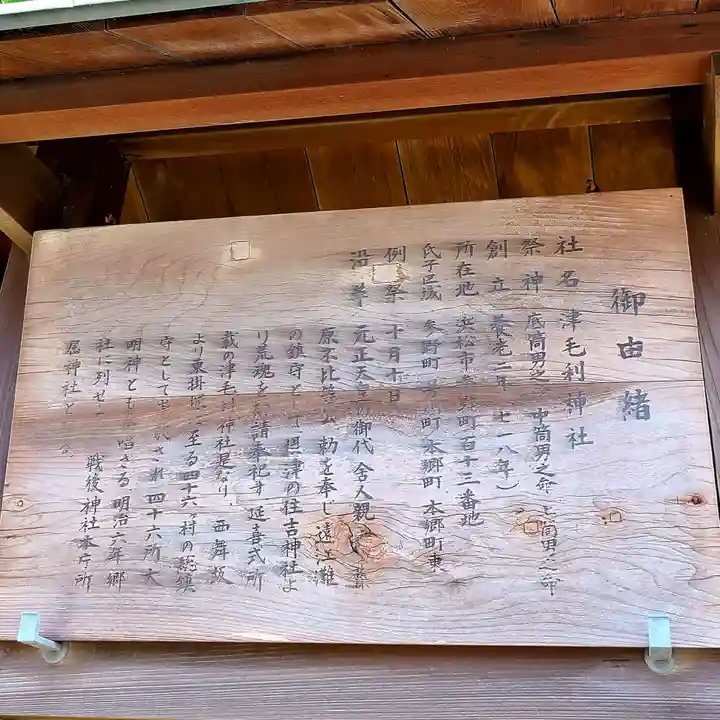 御由緒
社名 津毛利神社
祭神 底筒男之命 中筒男之命 上筒男之命
創立 養老二年(七一八年)
所在地 浜松市参野町百十三番地
氏子区域 参野町 町 本郷町 本郷町東
例祭 十月十日
沿革 元正天皇の御代 舎人親王 藤
原不比等 勅を奉じ 遠江灘
の鎮守として摂津の住吉神社よ
り荒魂を勧請奉祀す 延喜式所
載の津毛利神社是なり 西舞阪
より東掛塚に至る四十六ヶ村の総鎮
守として され四十六所大
明神とも 唱さる 明治六年郷
社に列せ 戦後神社本庁所
属神社と